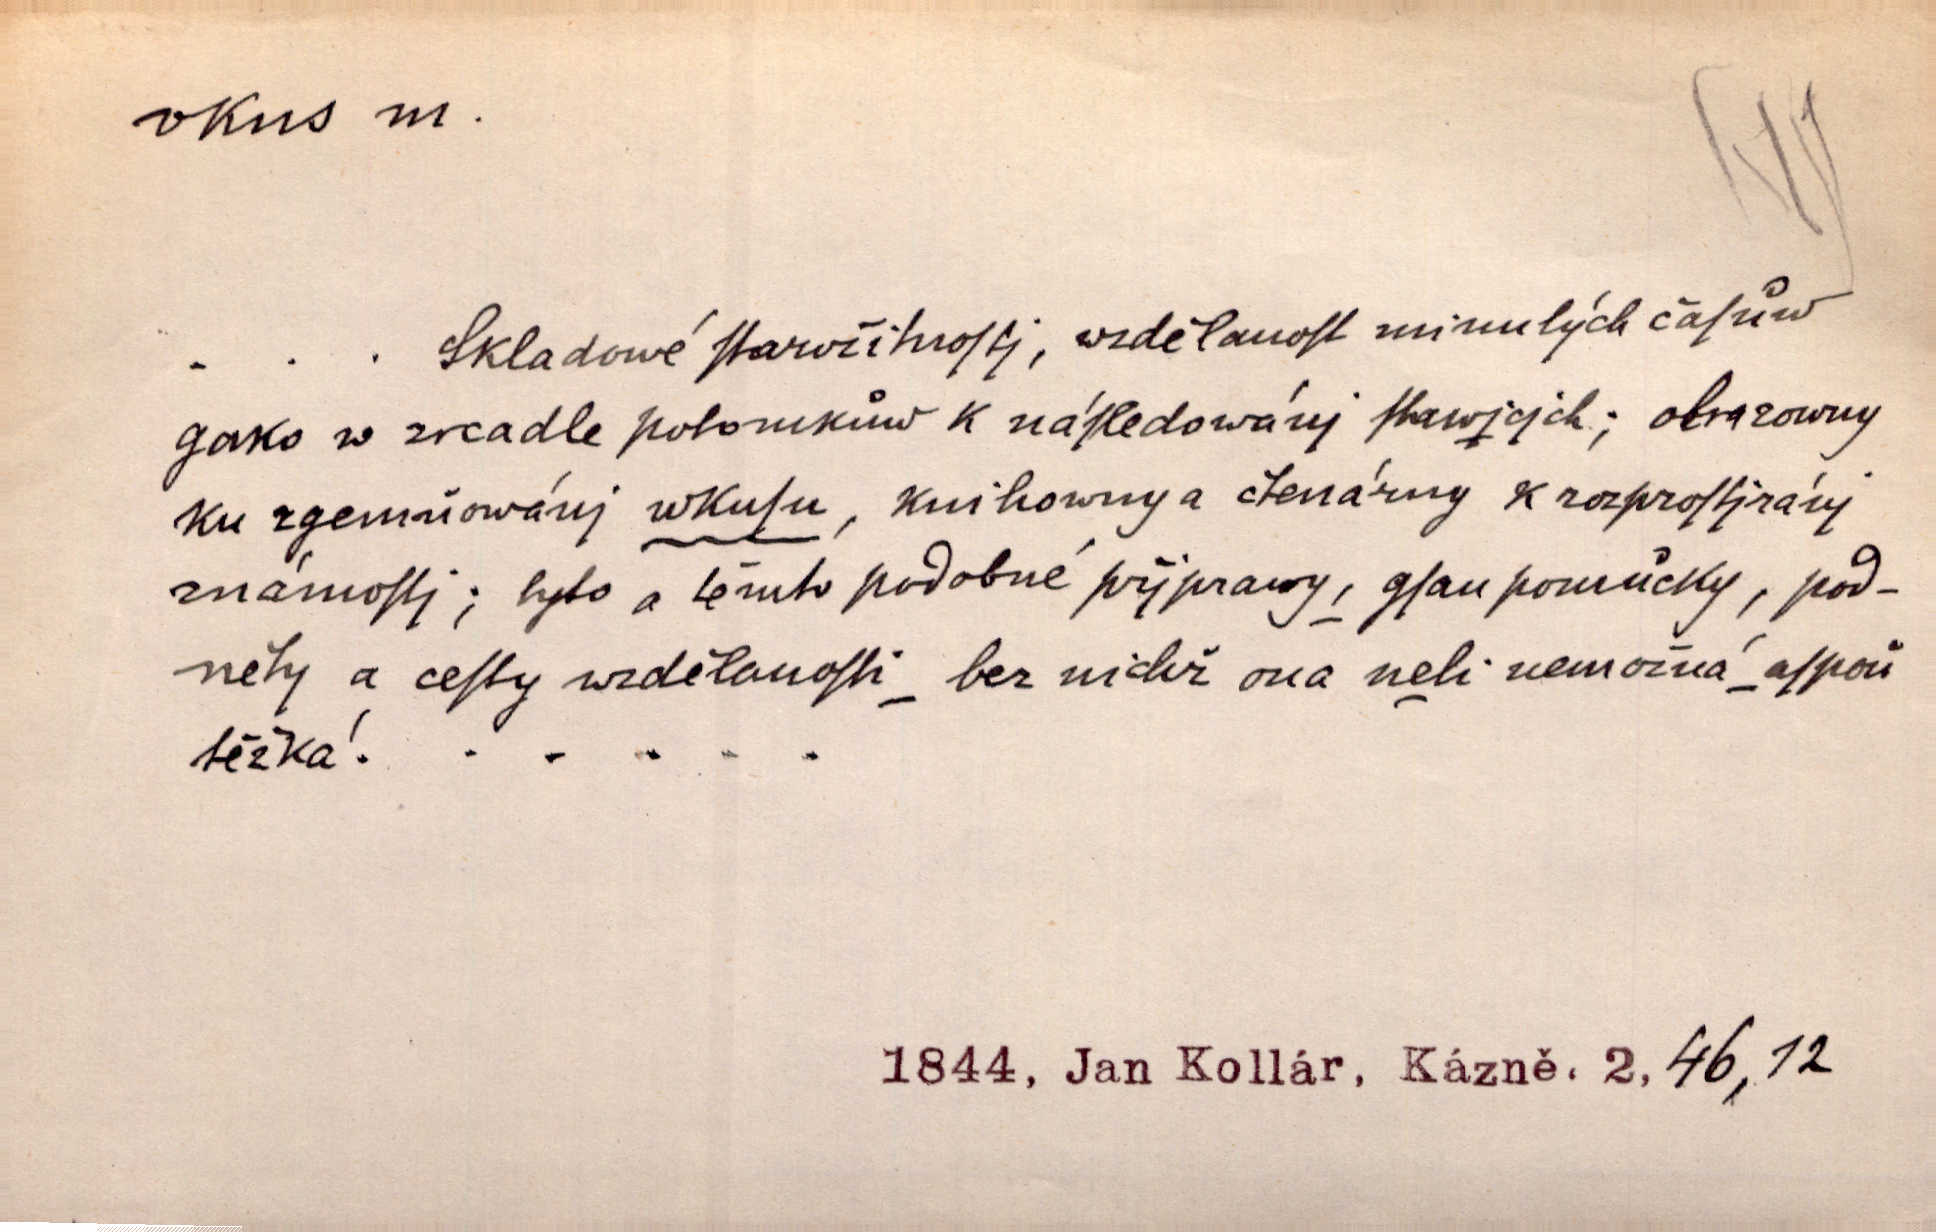 vkus m.
. . . Skladowé ſtarožitnoſtj, wzdělanoſt minulých čaſůw
gako w zrcadle potomkůw k náſledowánj ſtawjcých; obrazowny
ku zgemňowánj wkuſu, knihowny a čtenárny k rozproſtjránj
známoſtj; tyto a těmto podobné přjprawy, gſau pomůcky, pod-
něty a ceſty wzdělanoſti bez nichž ona neli nemožná aſpoň
těžká. . . . . .
1844, Jan Kollár, Kázně. 2, 46, 12